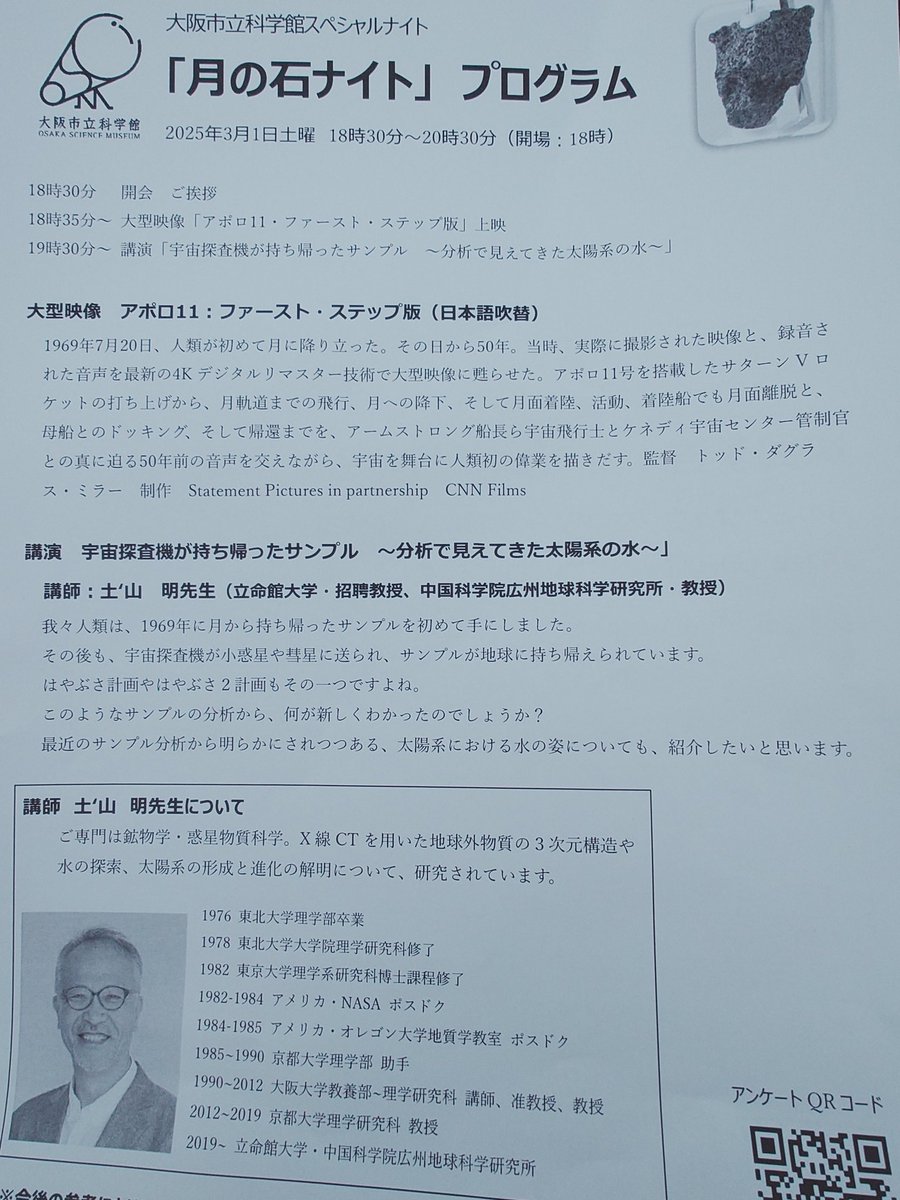 大阪市立科学館スペシャルナイト
「月の石ナイト」プログラム
大阪市立科学館
OSAKA SCIENCE MUSEUM
2025年3月1日土曜 18時30分～20時30分（開場：18時）
18時30分 開会 ご挨拶
18時35分～ 大型映像「アポロ11・ファースト・ステップ版」上映
19時30分～ 講演「宇宙探査機が持ち帰ったサンプル ～分析で見えてきた太陽系の水～」
大型映像 アポロ11：ファースト・ステップ版（日本語吹替）
1969年7月20日、人類が初めて月に降り立った。その日から50年。当時、実際に撮影された映像と、録音さ
れた音声を最新の4Kデジタルリマスター技術で大型映像に甦らせた。アポロ11号を搭載したサターンVロ
ケットの打ち上げから、月軌道までの飛行、月への降下、そして月面着陸、活動、着陸船でも月面離脱と、
母船とのドッキング、そして帰還までを、アームストロング船長ら宇宙飛行士とケネディ宇宙センター管制官
との真に迫る50年前の音声を交えながら、宇宙を舞台に人類初の偉業を描きだす。監督 トッド・ダグラ
ス・ミラー 制作 Statement Pictures in partnership CNN Films
講演 宇宙探査機が持ち帰ったサンプル ～分析で見えてきた太陽系の水～」
講師：土‘山 明先生（立命館大学・招聘教授、中国科学院広州地球科学研究所・教授）
我々人類は、1969年に月から持ち帰ったサンプルを初めて手にしました。
その後も、宇宙探査機が小惑星や彗星に送られ、サンプルが地球に持ち帰えられています。
はやぶさ計画やはやぶさ２計画もその一つですよね。
このようなサンプルの分析から、何が新しくわかったのでしょうか？
最近のサンプル分析から明らかにされつつある、太陽系における水の姿についても、紹介したいと思います。
講師 土‘山 明先生について
ご専門は鉱物学・惑星物質科学。X線CTを用いた地球外物質の３次元構造や
水の探索、太陽系の形成と進化の解明について、研究されています。
1976 東北大学理学部卒業
1978 東北大学大学院理学研究科修了
1982 東京大学理学系研究科博士課程修了
1982-1984 アメリカ・NASA ポスドク
1984-1985 アメリカ・オレゴン大学地質学教室 ポスドク
1985~1990 京都大学理学部 助手
1990~2012 大阪大学教養部~理学研究科 講師、准教授、教授
2012~2019 京都大学理学研究科 教授
2019~ 立命館大学・中国科学院広州地球科学研究所
アンケートQRコード